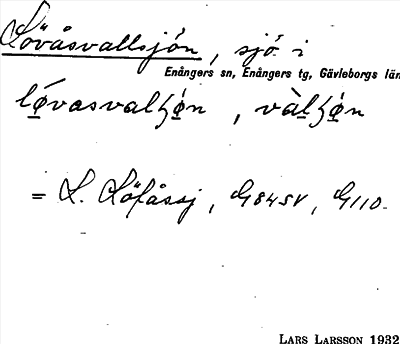 Lövåsvallsjön, sjö i
Enångers sn, Enångers tg, Gävleborgs län
lǿvasvalʃǿn, vàlʃǿn
= L. Löfåssj, G84SV, G110.
LARS LARSSON 1932